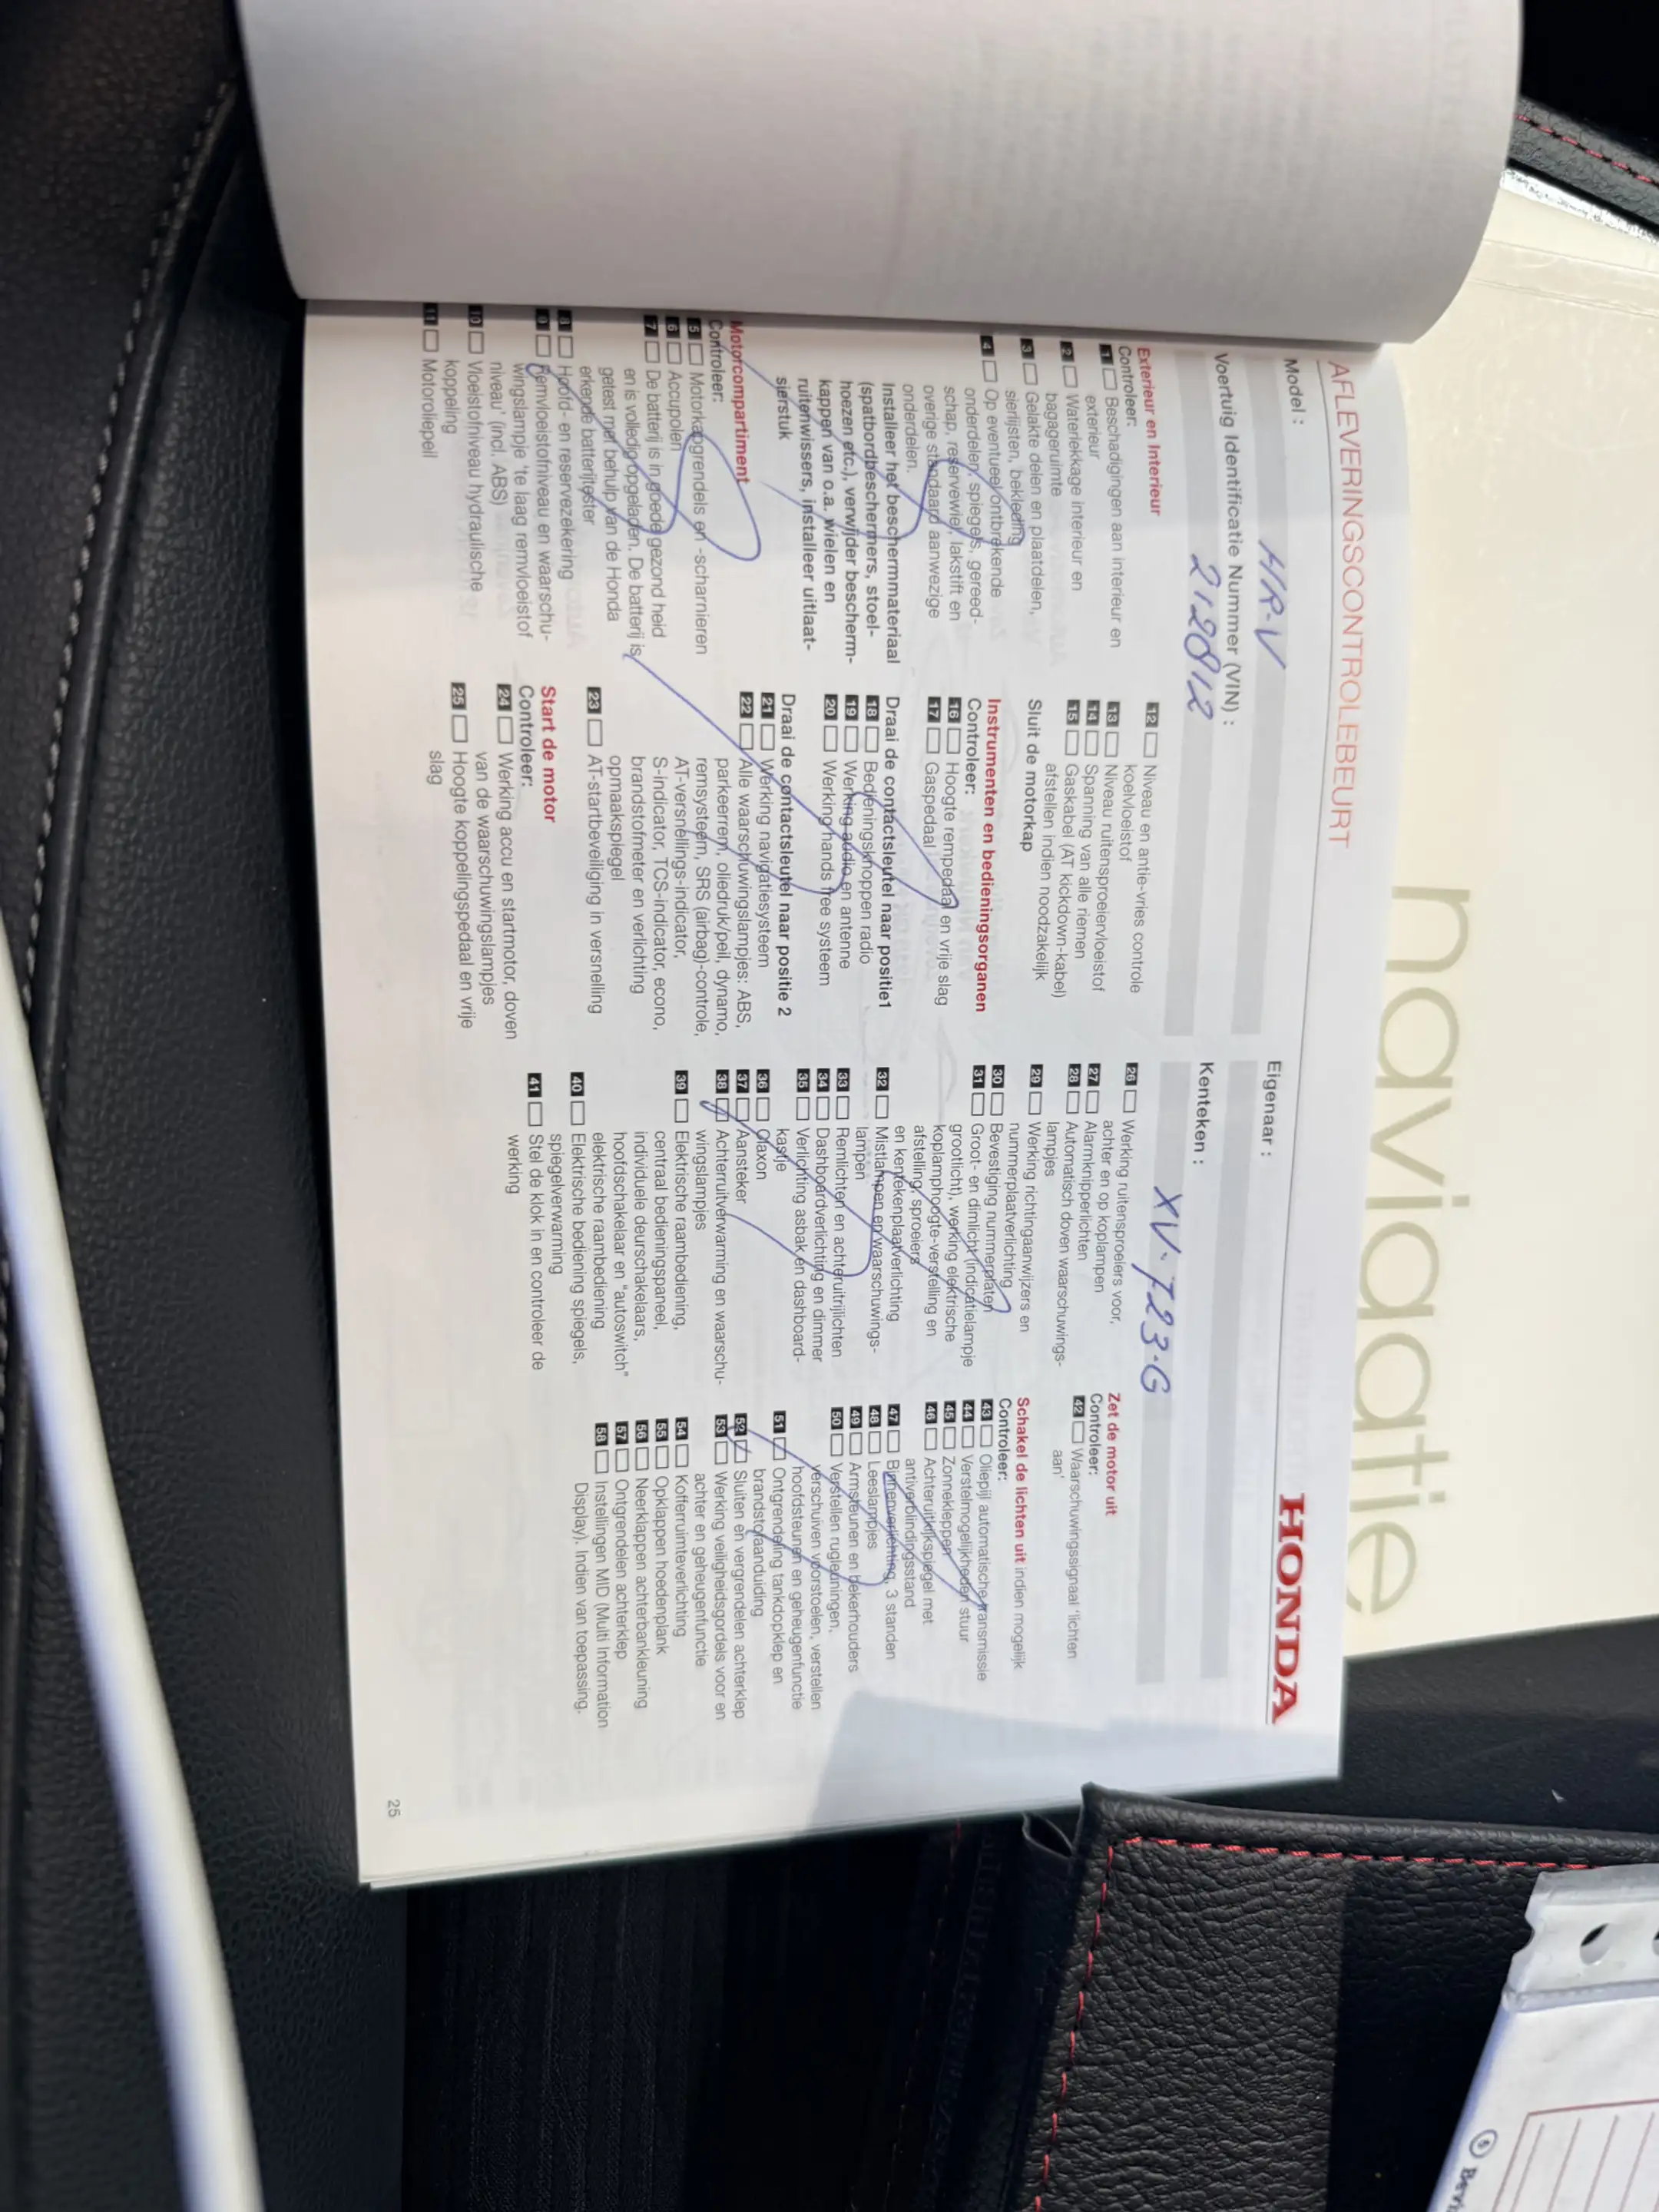 AFLEVERINGSCONTROLEBEURT
HONDA
Model : HR-V
Voertuig Identificatie Nummer (VIN) :
212812
Eigenaar :
Kenteken : XV-723-G
Exterieur en Interieur
Controleer:
1 Beschadigingen aan interieur en
exterieur
2 Waterlekkage interieur en
bagageruimte
3 Gelakte delen en plaatdelen,
sierlijsten, bekleding
4 Op eventueel ontbrekende
onderdelen, spiegels, gereed-
schap, reservewiel, lakstift en
overige standaard aanwezige
onderdelen.
Installeer het beschermmateriaal
(spatbordbeschermers, stoel-
hoezen etc.), verwijder bescherm-
kappen van o.a. wielen en
ruitenwissers, installeer uitlaat-
sierstuk
Motorcompartiment
Controleer:
5 Motorkapgrendels en -scharnieren
6 Accupolen
7 De batterij is in goede gezond heid
en is volledig opgeladen. De batterij is
getest met behulp van de Honda
erkende batterijtester
8 Hoofd- en reservezekering
9 Remvloeistofniveau en waarschu-
wingslampje 'te laag remvloeistof
niveau' (incl. ABS)
10 Vloeistofniveau hydraulische
koppeling
11 Motoroliepeil
12 Niveau en antie-vries controle
koelvloeistof
13 Niveau ruitensproeiervloeistof
14 Spanning van alle riemen
15 Gaskabel (AT kickdown-kabel)
afstellen indien noodzakelijk
Sluit de motorkap
Instrumenten en bedieningsorganen
Controleer:
16 Hoogte rempedaal en vrije slag
17 Gaspedaal
Draai de contactsleutel naar positie1
18 Bedieningsknoppen radio
19 Werking audio en antenne
20 Werking hands free systeem
Draai de contactsleutel naar positie 2
21 Werking navigatiesysteem
22 Alle waarschuwingslampjes: ABS,
parkeerrem, oliedruk/peil, dynamo,
remsysteem, SRS (airbag)-controle,
AT-versnellings-indicator,
S-indicator, TCS-indicator, econo,
brandstofmeter en verlichting
opmaakspiegel
23 AT-startbeveiliging in versnelling
Start de motor
Controleer:
24 Werking accu en startmotor, doven
van de waarschuwingslampjes
25 Hoogte koppelingspedaal en vrije
slag
26 Werking ruitensproeiers voor,
achter en op koplampen
27 Alarmknipperlichten
28 Automatisch doven waarschuwings-
lampjes
29 Werking richtingaanwijzers en
nummerplaatverlichting
30 Bevestiging nummerplaten
31 Groot- en dimlicht (indicatielampje
grootlicht), werking elektrische
koplamphoogte-verstelling en
afstelling, sproeiers
en kentekenplaatverlichting
32 Mistlampen en waarschuwings-
lampen
33 Remlichten en achteruitrijlichten
34 Dashboardverlichting en dimmer
35 Verlichting asbak en dashboard-
kastje
36 Claxon
37 Aansteker
38 Achterruitverwarming en waarschu-
wingslampjes
39 Elektrische raambediening,
centraal bedieningspaneel,
individuele deurschakelaars,
hoofdschakelaar en "autoswitch"
elektrische raambediening
40 Elektrische bediening spiegels,
spiegelverwarming
41 Stel de klok in en controleer de
werking
Zet de motor uit
Controleer:
42 Waarschuwingssignaal 'lichten
aan'
Schakel de lichten uit indien mogelijk
Controleer:
43 Oliepijl automatische transmissie
44 Verstelmogelijkheden stuur
45 Zonnekleppen
46 Achteruitkijkspiegel met
antiverblindingsstand
47 Binnenverlichting, 3 standen
48 Leeslampjes
49 Armsteunen en bekerhouders
50 Verstellen rugleuningen,
verschuiven voorstoelen, verstellen
hoofdsteunen en geheugenfunctie
51 Ontgrendeling tankdopklep en
brandstofaanduiding
52 Sluiten en vergrendelen achterklep
53 Werking veiligheidsgordels voor en
achter en geheugenfunctie
54 Kofferruimteverlichting
55 Opklappen hoedenplank
56 Neerklappen achterbankleuning
57 Ontgrendelen achterklep
58 Instellingen MID (Multi Information
Display). Indien van toepassing.
25
navigatie